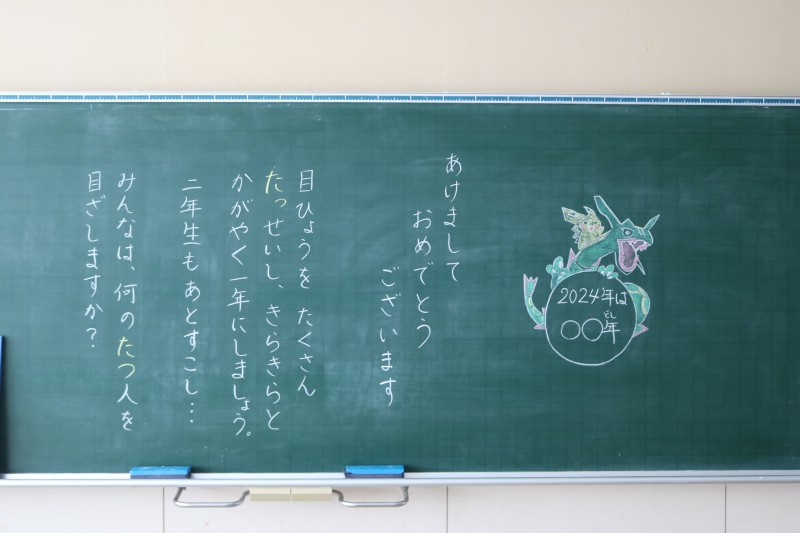 2024年は
〇〇年
どし
あけまして
おめでとう
ございます
目ひょうを たくさん
たっせいし、きらきらと
かがやく一年にしましょう。
二年生もあとすこし…
みんなは、何のたつ人を
目ざしますか?